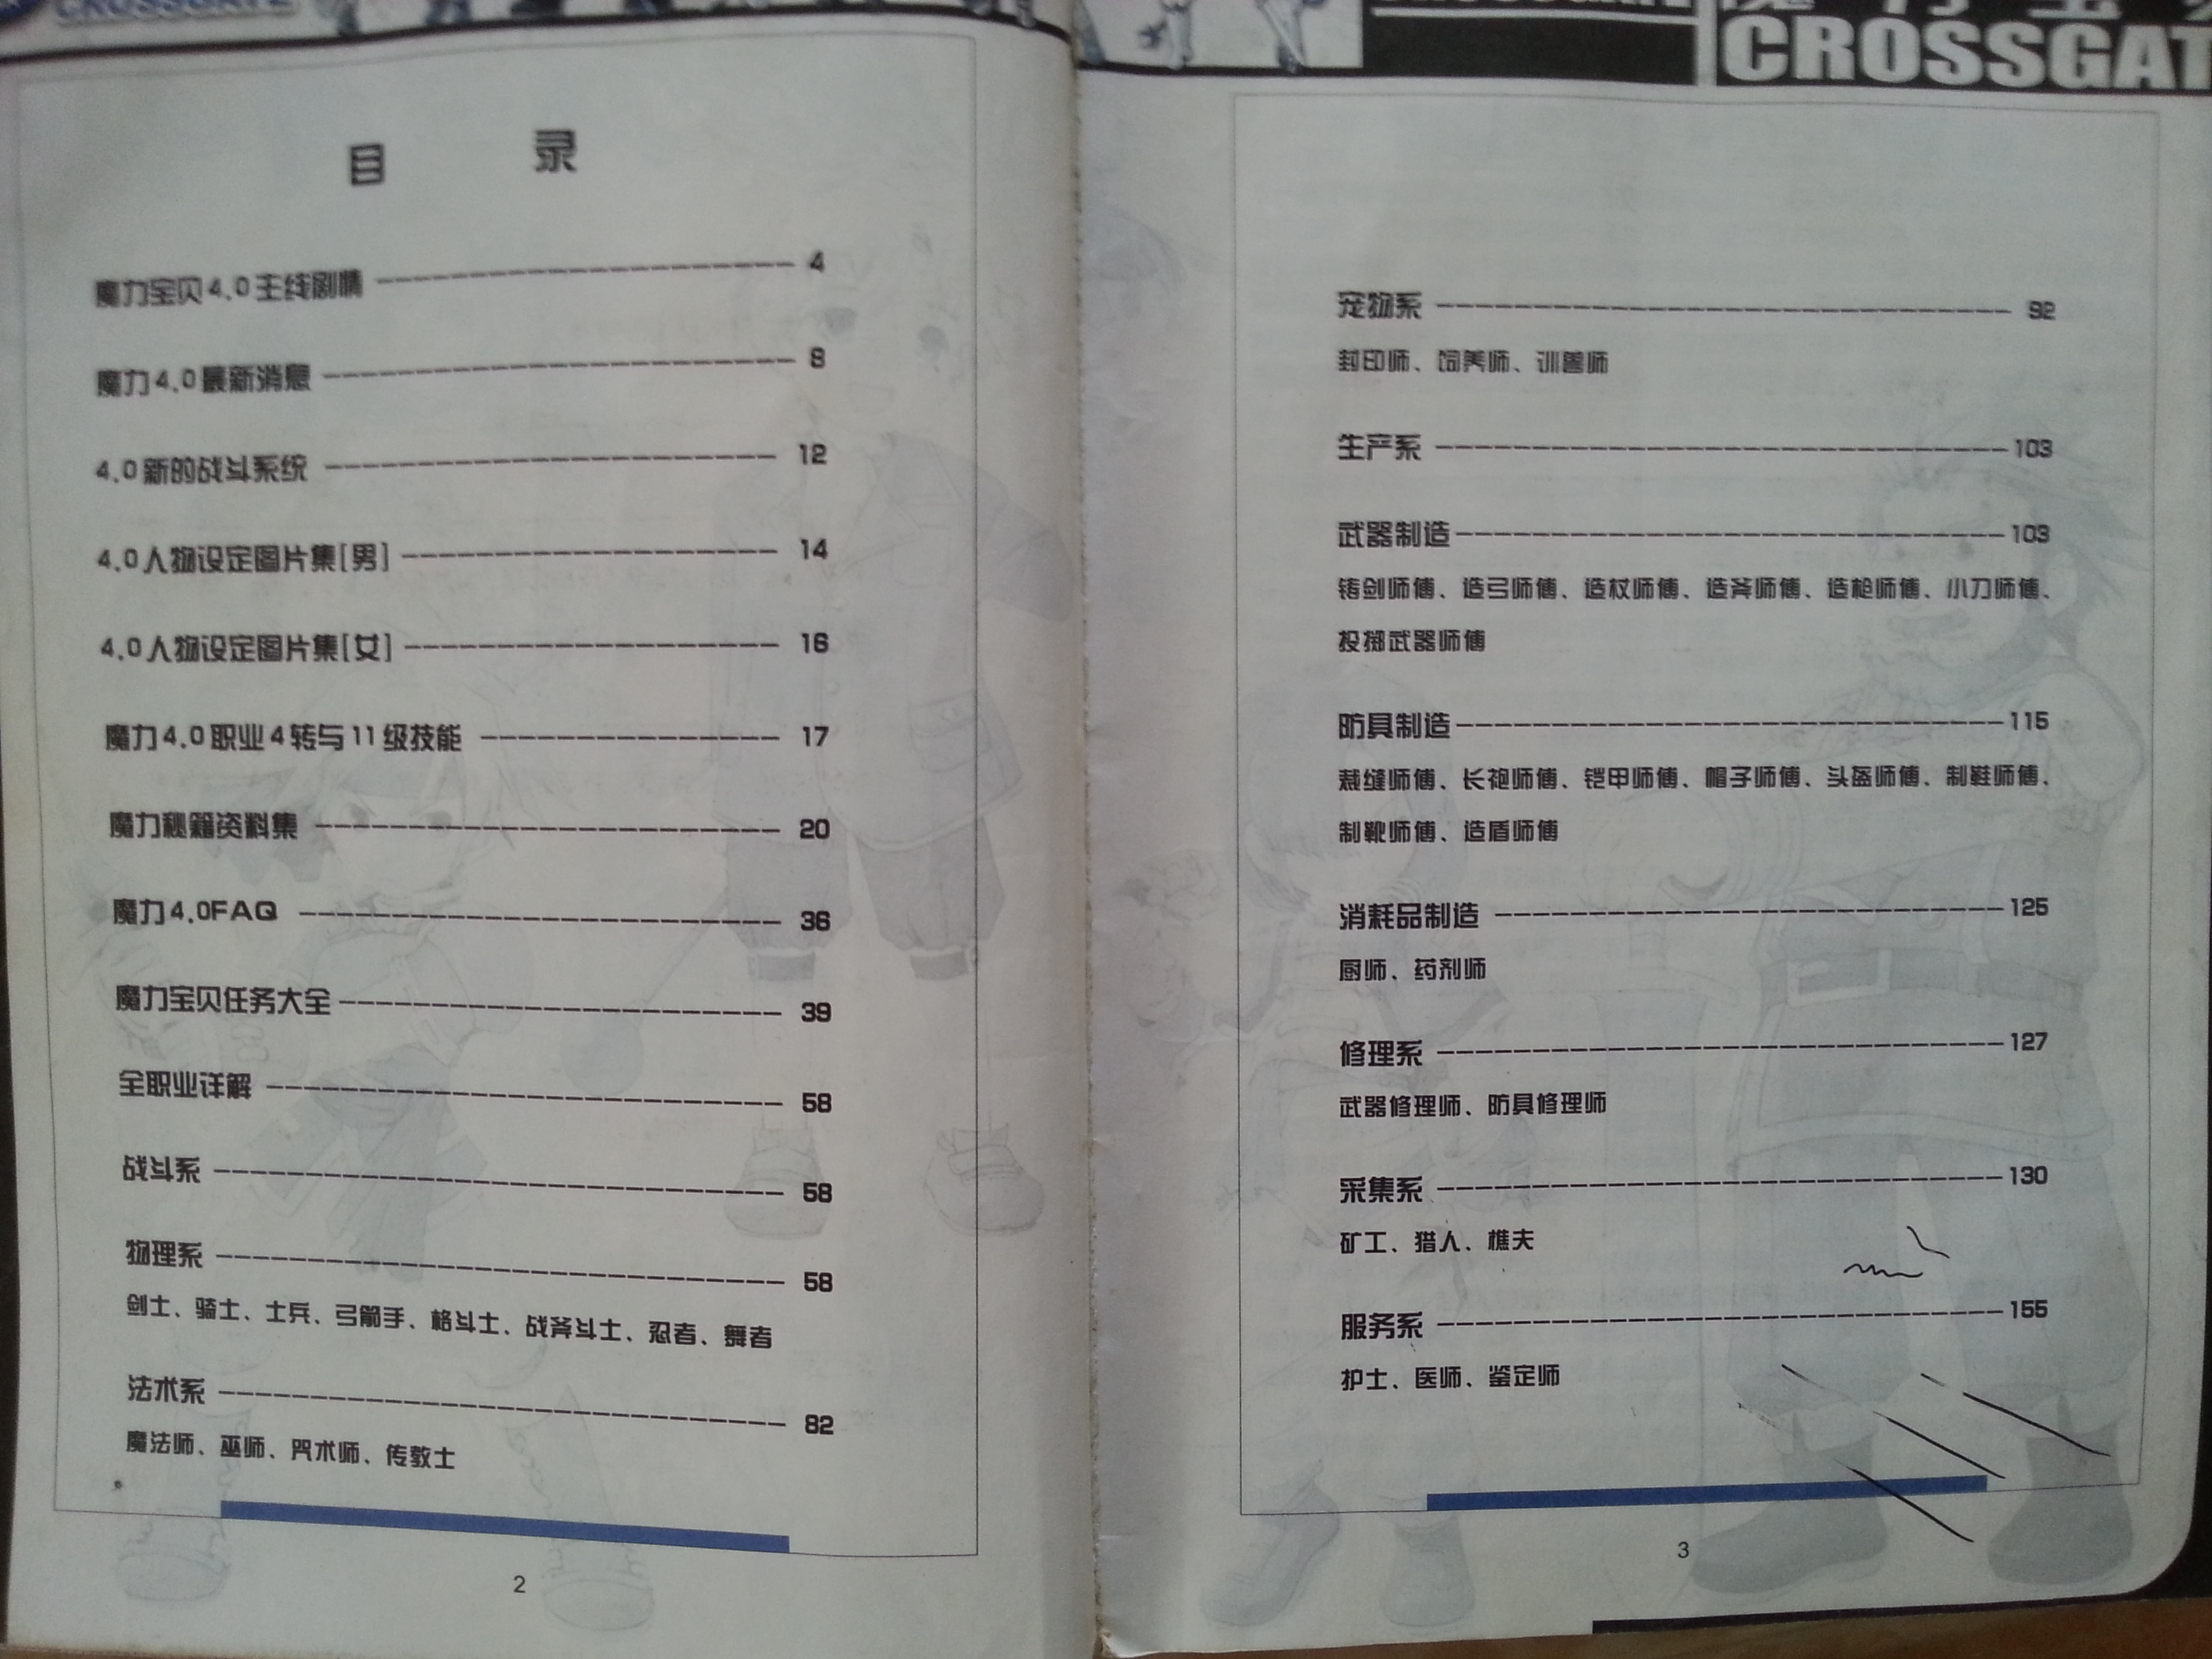 CROSSGATE
目 录
魔力宝贝4.0主线剧情 4
魔力4.0最新消息 8
4.0新的战斗系统 12
4.0人物设定图片集[男] 14
4.0人物设定图片集[女] 16
魔力4.0职业4转与11级技能 17
魔力秘籍资料集 20
魔力4.0FAQ 36
魔力宝贝任务大全 39
全职业详解 58
战斗系 58
物理系 58
剑士、骑士、士兵、弓箭手、格斗士、战斧斗士、忍者、舞者
法术系 82
魔法师、巫师、咒术师、传教士
2
CROSSGAT
宠物系 92
封印师、饲养师、训兽师
生产系 103
武器制造 103
铸剑师傅、造弓师傅、造杖师傅、造斧师傅、造枪师傅、小刀师傅、
投掷武器师傅
防具制造 115
裁缝师傅、长袍师傅、铠甲师傅、帽子师傅、头盔师傅、制鞋师傅、
制靴师傅、造盾师傅
消耗品制造 125
厨师、药剂师
修理系 127
武器修理师、防具修理师
采集系 130
矿工、猎人、樵夫
服务系 155
护士、医师、鉴定师
3